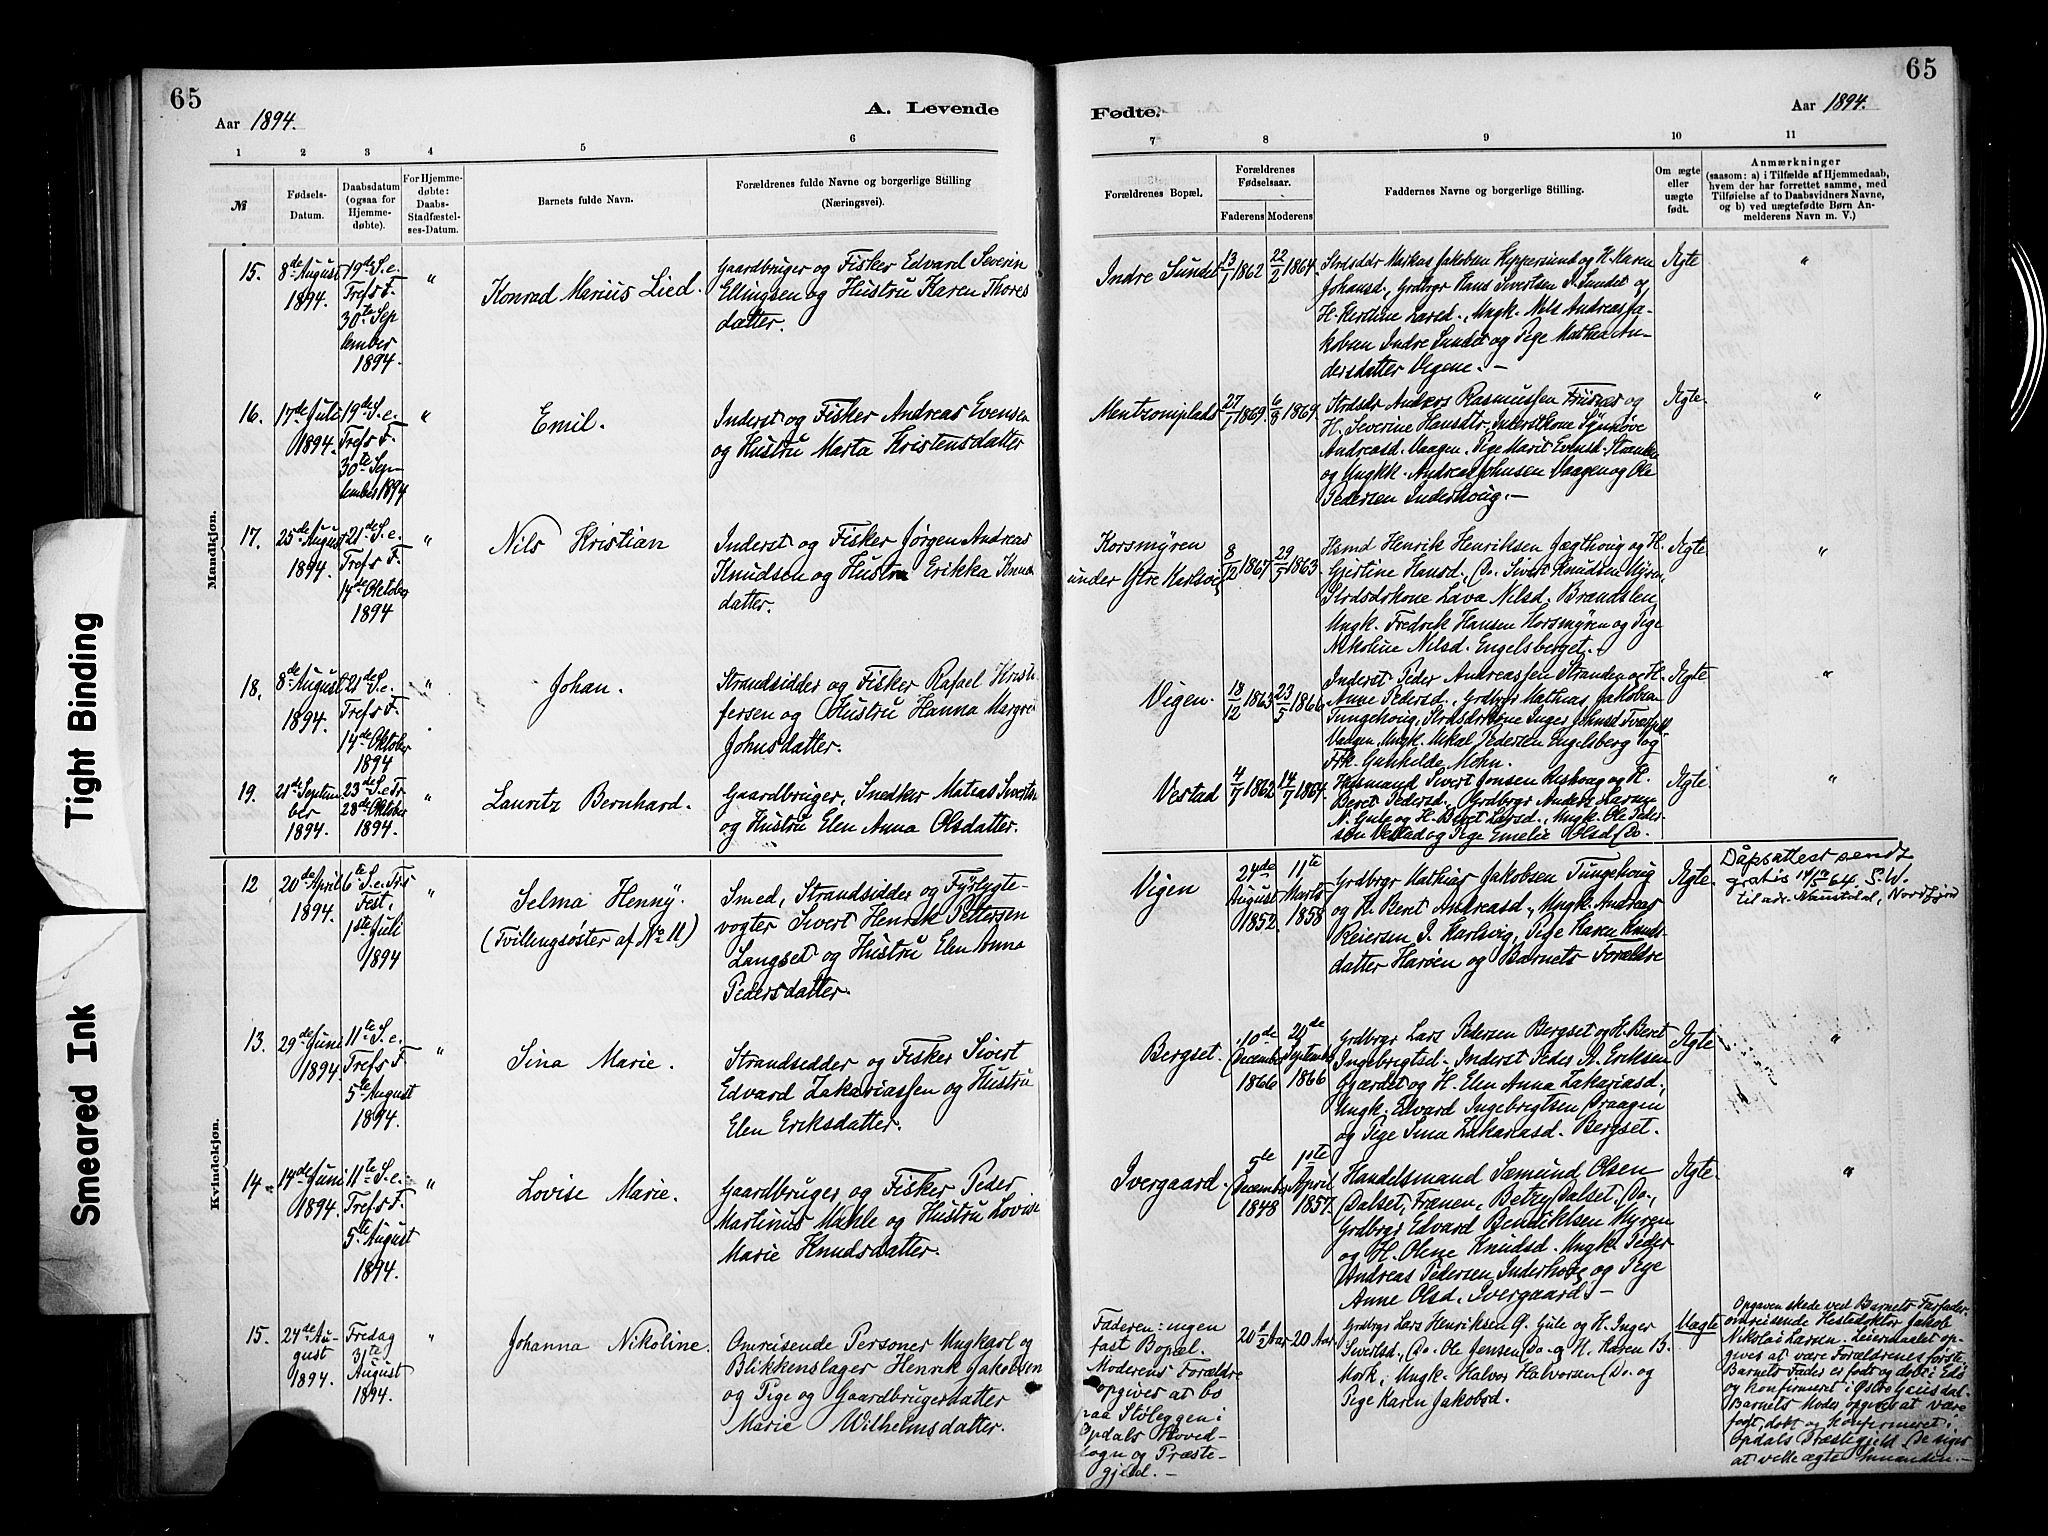 65
Aar 1894.
A. Levende
1 2 3 4 5 6
№
Fødsels-
Datum.
Daabsdatum
(ogsaa for
Hjemme-
døbte).
For Hjemme-
døbte:
Daabs-
Stadfæstel-
ses-Datum.
Barnets fulde Navn.
Forældrenes fulde Navne og borgerlige Stilling
(Næringsvei).
Mandkjøn.
15.
8de August
1894.
19de S. e.
Tref s F.
30te Sep
tember
1894.
"
Konrad Marius Lied.
Gaardbruger og Fisker Edvard Severin
Ellingsen og Hustru Karen Thores
datter.
16.
17de Juli
1894.
19de S. e.
Tref s F.
30te Sep-
tember 1894
"
Emil.
Inderst og Fisker Andreas Evensen
og Hustru Marta Kristensdatter
17.
25de August
1894.
21de S. e.
Tref s F.
14de Oktober
1894
"
Nils Kristian
Inderst og Fisker Jørgen Andreas
Knudsen og Hustru Erikka Knu
datter.
18.
8de August
1894.
21de S. e.
Tref s F.
14de Oktober
1894
"
Johan.
Strandsidder og Fisker Rafael Krist
fersen og Hustru Hanna Margre
Johnsdatter.
19.
21de Septem
ber
1894.
23de S. e Tr
28de Oktober
1894.
"
Lauritz Bernhard.
Gaardbruger, Snedker Matias Sivertsen
og Hustru Elen Anna Olsdatter.
Kvindekjøn.
12
20de April
1894.
6te S. e. Trs
Fest,
1ste Juli
1894
"
Selma Henny.
(Tvillingsøster af No 11)
Smed, Strandsidder og Fyrlygte-
vogter Sivert Henrik Pettersen
Langset og Hustru Elen Anna
Pedersdatter.
13.
29de Juni
1894.
11te S. e.
Tref s F.
5te August
1894.
"
Sina Marie.
Strandsidder og Fisker Sivert
Edvard Zakariassen og Hustru
Elen Eriksdatter.
14.
14de Juni
1894.
11te S. e.
Tref s F.
5te August
1894.
"
Lovise Marie.
Gaardbruger og Fisker Peder
Martinus Mahle og Hustru Lovise
Marie Knudsdatter.
15.
24de Au-
gust
1894.
Fredag
31te
August
1894.
"
Johanna Nikoline.
Omreisende Personer Ungkarl og
Blikkenslager Henrik Jakobsen
og Pige og Gaardbrugerdatter
Marie Wilhelmsdatter.
Tight Binding
Smeared Ink
65
Fødte.
Aar 1894.
7 8 9 10 11
Forældrenes Bopæl.
Forældrenes
Fødselsaar.
Faderens Moderens
Faddernes Navne og borgerlige Stilling.
Om ægte
eller
uægte
født.
Anmærkninger
(saasom: a) i Tilfælde af Hjemmedaab,
hvem der har forrettet samme, med
Tilføielse af to Daabsvidners Navne,
og b) ved uægtefødte Børn An-
melderens Navn m. V.)
Indre Sundet
13/1 1862
22/2 1864.
Strdsddr Markus Jakobsen Kippersund og H. Karen
Johansd., Grdbrgr Hans Sivertsen I. Sundet og
H. Kerstine Larsd., Ungk. Nils Andreas Ja-
kobsen Indre Sundet og Pige Mathea An-
dersdatter Vegene. -
Ægte
"
Mentzoniplads
27/7 1869.
6/8 1869.
Strdsdr Anders Rasmussen Friisnes og
H. Severine Hansdtr, Inderstkone Synnøve
Andreasd. Vaagen, Pige Marit Evensd. Stranden
og Ungkk. Andreas Johnsen Vaagen og Ole
Pedersen Inderhoug. -
Ægte.
"
Korsmyren
under Ytre Karlsvig
8/12 1867
29/5 1863.
Hsmd Henrik Henriksen Jægthoug og H.
Gjertine Hansd., Do. Sivert Knudsen Myren,
Strdsdrkone Lava Nilsd. Brandslen,
Ungk. Fredrik Hansen Korsmyren og Pige
Nikoline Nilsd. Engelsberget. -
Ægte
"
Vigen.
18/12 1863
23/5 1866
Inderst Peder Andreassen Stranden og H.
Anne Pedersd., Grdbrgr Mathias Jakobsen
Tungehoug, Strdsdrkone Inger Johnsd
Vaagen, Ungk. Mikal Pedersen Engelsberg og
Frk. Gunhilde Mohn.
Ægte
"
Vestad
4/7 1862
14/7 1864.
Husmand Sivert Jonsen Reshoug og H.
Beret Pedersd., Grdbrgr Anders Larsen
N. Gule og H. Beret Larsd., Ungk. Ole Peder-
sen Vestad og Pige Emelie Olsd. Do.
Ægte
"
Vigen
24de
August
1852.
11te
Marts
1858
Grdbrgr Mathias Jakobsen Tungehoug
og H. Beret Andreasd., Ungk. Andreas
Reiersen I. Karlsvig, Pige Karen Knuds
datter Harøen og Barnets Forældre
Ægte.
Dåpsattest sendt
gratis 14/5 64 S.W.
til adr. Naustdal, Nordfjord
Bergset.
10de
December
1866
20de
September
1866
Grdbrgr Lars Pedersen Bergset og H. Beret
Ingebrigtsd. Inderst Peder A. Eriksen
Gjærdet og H. Elen Anna Zakariasd.,
Ungk. Edvard Ingebrigtsen Draagen
og Pige Sina Zakariasd. Bergset.
Ægte
"
Ivergaard.
5te
December
1848
1ste
April
1857.
Handelsmand Sæmund Olsen
Dalset, Frænen, Betzy Dalset, Do.,
Grdbrgr Edvard Bendiktsen Myren
og H. Olene Knudsd. Ungk. Peder
Andreas Pedersen Inderhoug og Pige
Anne Olsd., Ivergaard. -
Ægte
"
Faderen: ingen
fast Bopæl.
Moderens Forældre
opgives at bo
paa Støleggen i
Opdals Hoved-
sogn og Præste-
gjeld. -
20 1/2 Aar
20 Aar
Grdbrgr Lars Henriksen G. Gule og H. Inger
Sivertsd., Do. Ole Jensen Do. og H. Karen B.
Mork, Ungk. Halvor Halvorsen Do. og
Pige Karen Jakobsd.
Uægte
Opgaven skede ved Barnets Farfader
omreisende Hestedoktor Jakob
Nikolai Larsen. Leiermaalet op-
gives at være Forældrenes første.
Barnets Fader er født og døbt i Eds
og konfirmeret i Østre Gausdal.
Barnets Moder opgives at være
født, døbt og konfirmeret i
Opdals Præstegjeld. De siges
at ville ægte hinanden. -